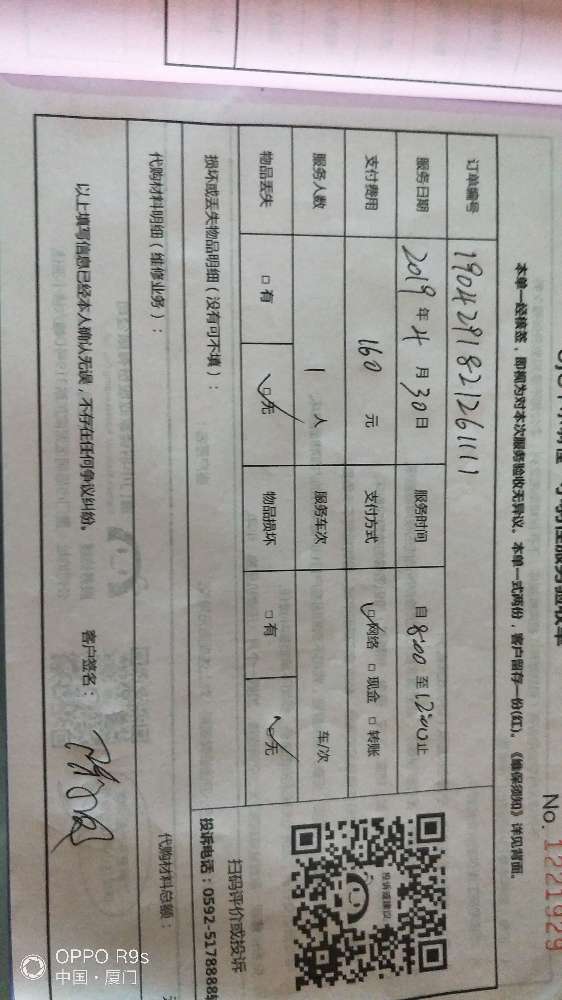 服务验收单
No. 1221929
本单一经核签，即视为对本次服务验收无异议。本单一式两份，客户留存一份(红)。《维保须知》详见背面。
订单编号 190429182126111
服务日期 2019年4月30日 服务时间 自8:00至12:00止
支付费用 160元 支付方式 ☑网络 □现金 □转账
服务人数 1人 服务车次 车/次
物品丢失 □有 ☑无 物品损坏 □有 ☑无
投诉或建议
扫码评价或投诉
投诉电话：0592-5178888转
损坏或丢失物品明细（没有可不填）：
代购材料明细（维修业务）： 代购材料总额：
以上填写信息已经本人确认无误，不存在任何争议纠纷。 客户签名：
OPPO R9s
中国·厦门